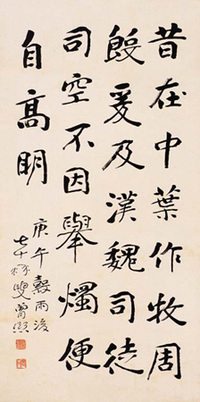 昔在中葉作牧周
殷爰及漢魏司徒
司空不因舉燭便
自高明
庚午穀雨後
七十叟曾熙